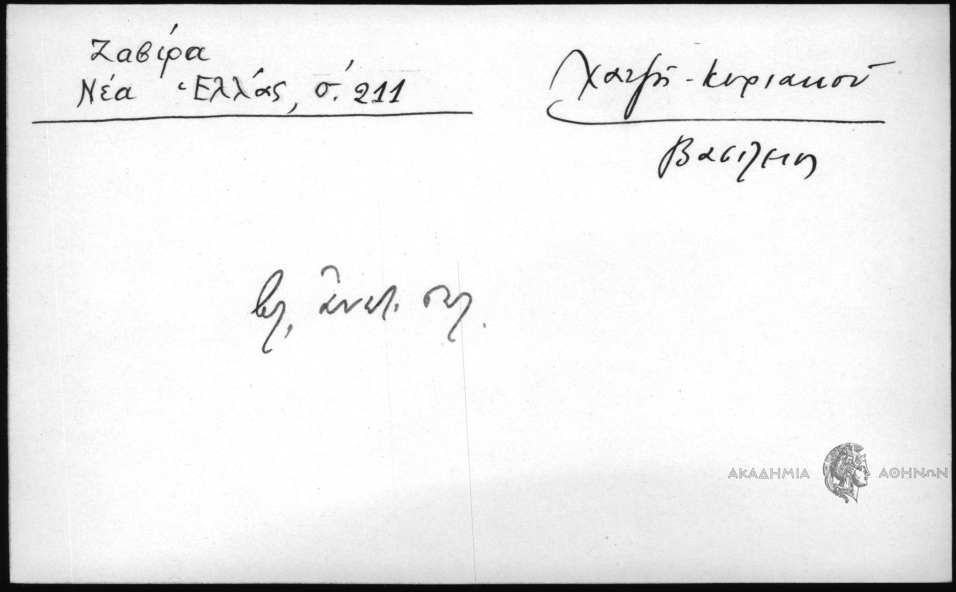 Ζαβίρα
Νέα Ἑλλάς, σ. 211
Χατζῆ-Κυριακοῦ
Βασίλειος
βλ. ἀνωτ. σελ.
ΑΚΑΔΗΜΙΑ ΑΘΗΝΩΝ